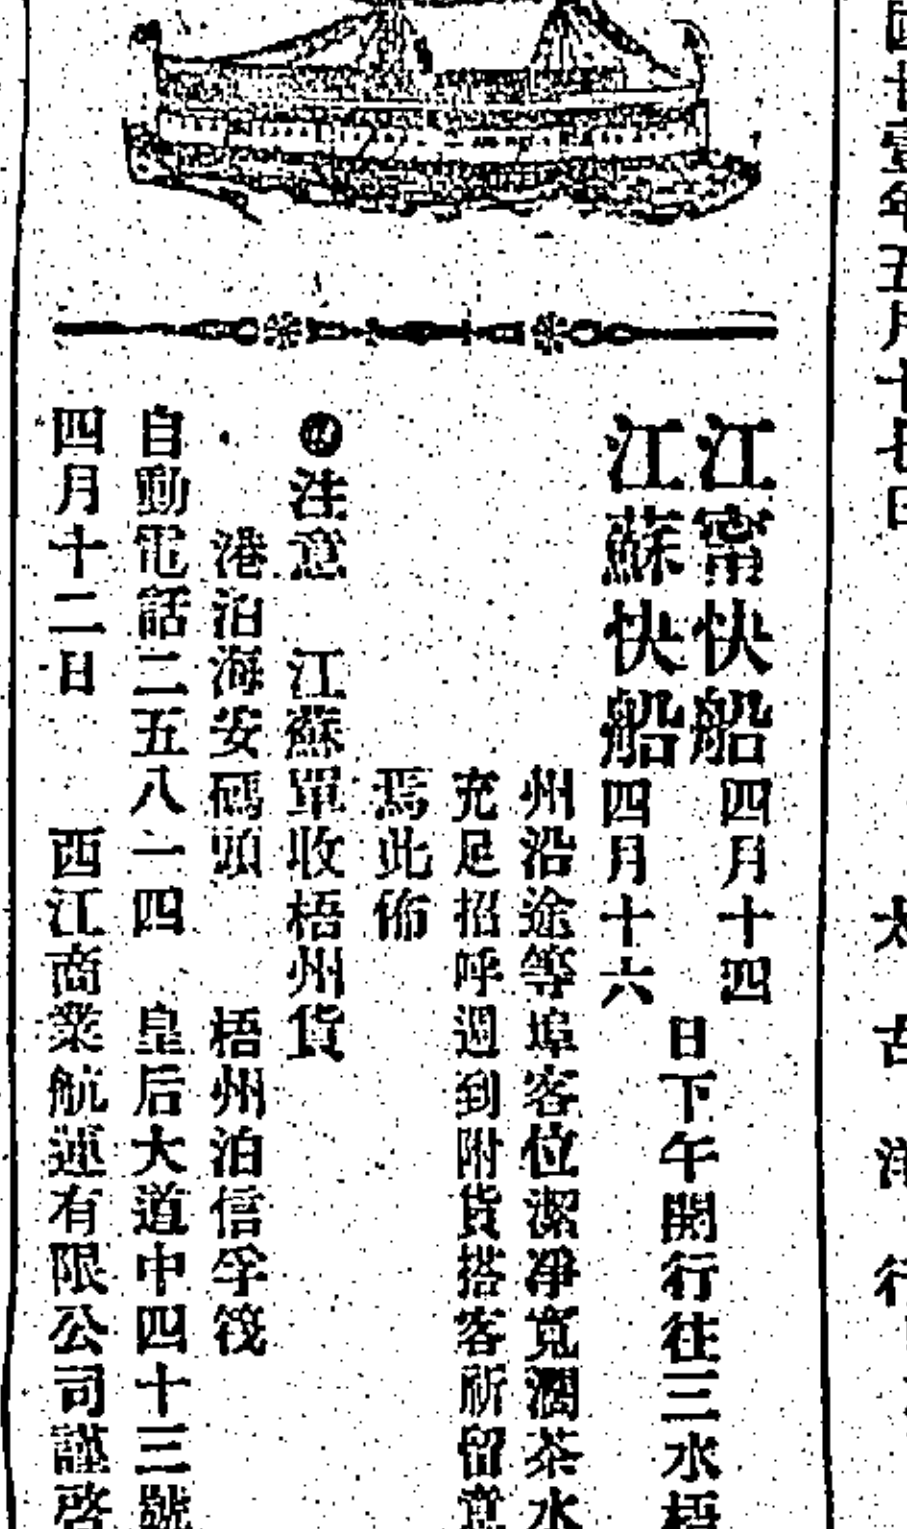 國廿壹年五月十七日
太古洋行
江寗快船四月十四
江蘇快船四月十六
日下午開行往三水梧
州沿途等埠客位潔凈寬濶茶水
充足招呼週到附貨搭客祈留意
焉此佈
注意 江蘇單收梧州貨
港泊海安碼頭 梧州泊信孚筏
自動電話二五八一四 皇后大道中四十三號
四月十二日 西江商業航運有限公司謹啓